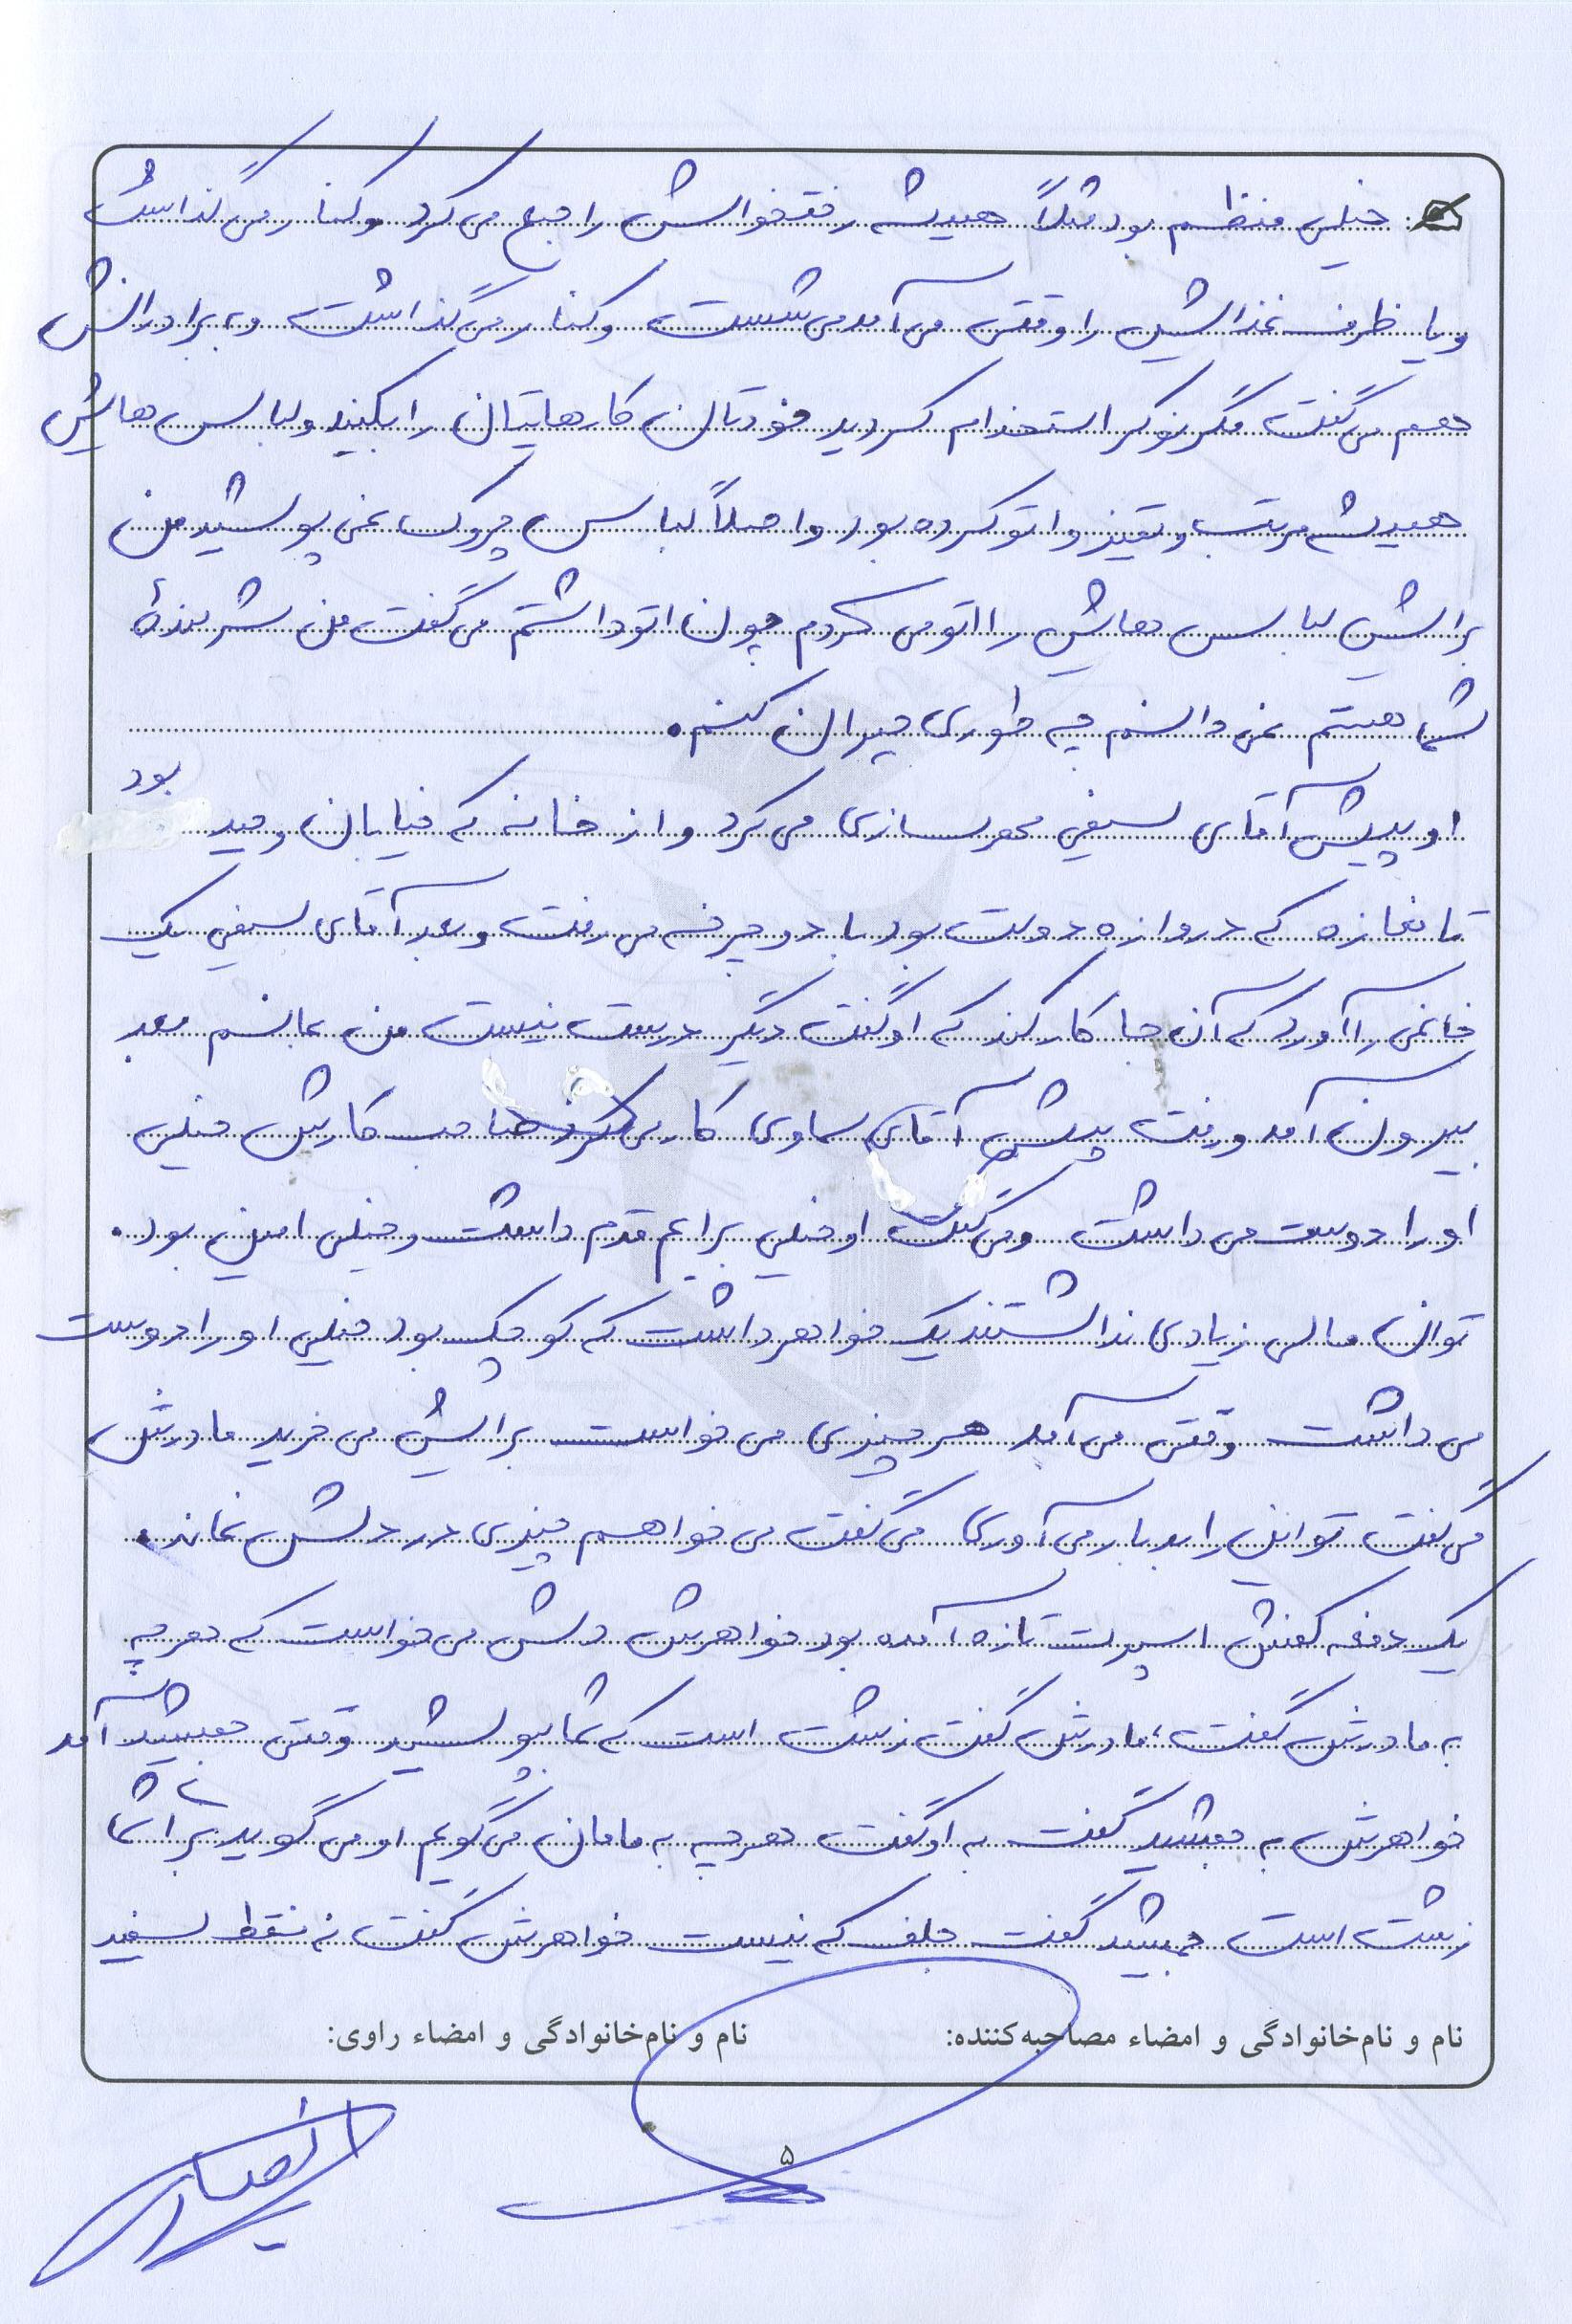 خیلی منظم بود مثلاً همیشه رختخوابش را جمع می کرد و کنار می گذاشت
و یا ظرف غذایش را وقتی می آمد می شست و کنار می گذاشت و به برادرانش
هم می گفت مگر نوکر استخدام کردید خودتان کارهایتان را بکنید و لباس هایش
همیشه مرتب و تمیز و اتو کرده بود و اصلاً لباس چروک نمی پوشید من
برایش لباس هایش را اتو می کردم چون اتو داشتم می گفت من شرمندۀ
شما هستم نمی دانم چه طوری جبران کنم.
او پیش آقای سیفی مهرسازی می کرد و از خانه که خیابان وحید بود
تا مغازه که دروازه دولت بود با دوچرخه می رفت و بعد آقای سیفی یک
خانمی را آورد که آن جا کار کند که او گفت دیگر درست نیست من بمانم بعد
بیرون آمد و رفت پیش آقای سماوی کار می کرد صاحب کارش خیلی
او را دوست می داشت و می گفت او خیلی برایم قدم داشت و خیلی امین بود.
توان مالی زیادی نداشتند یک خواهر داشت که کوچک بود خیلی او را دوست
می داشت وقتی می آمد هر چیزی می خواست برایش می خرید مادرش
می گفت تو این را بد بار می آوری می گفت می خواهم چیزی در دلش نماند.
یک دفعه کفش اسپرت تازه آمده بود خواهرش دلش می خواست که هر چه
به مادرش گفت، مادرش گفت زشت است که شما بپوشید وقتی جمشید آمد
خواهرش به جمشید گفت به او گفت هر چه به مامان می گویم او می گوید برا شما
زشت است جمشید گفت جلف که نیست خواهرش گفت نه فقط سفید
نام و نام‌خانوادگی و امضاء مصاحبه‌کننده: نام و نام‌خانوادگی و امضاء راوی:
۵